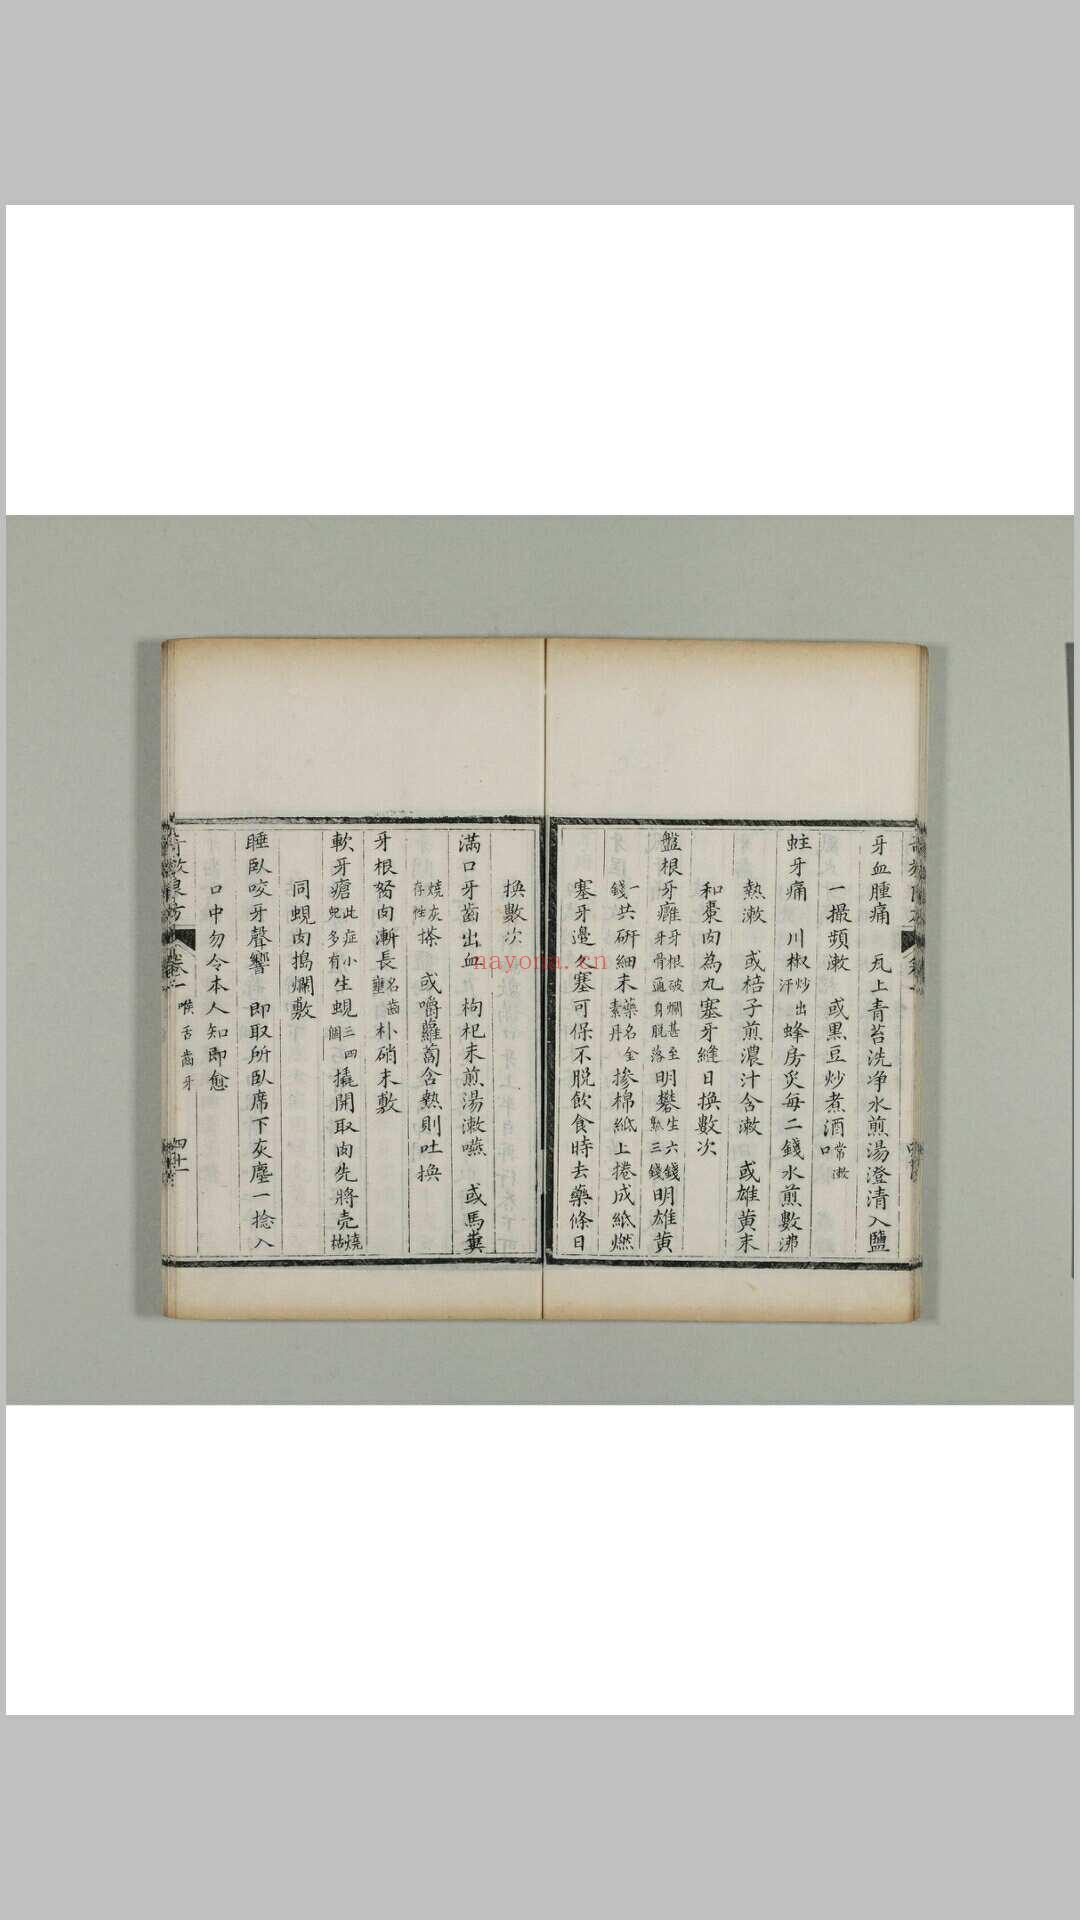 牙血腫痛　瓦上青苔洗净水煎湯澄清入鹽
一撮頻漱　或黑豆炒煮酒常漱口
蛀牙痛　川椒炒出汗蜂房炙每二錢水煎數沸
熱漱　或梧子煎濃汁含漱　或雄黄末
和棗肉為丸塞牙縫日換數次
盤根牙癰牙根破爛甚至牙骨通身脱落明礬生六錢煅三錢明雄黄
一錢共研細末藥名金素丹摻棉紙上捲成紙燃
塞牙邊久塞可保不脫飲食時去藥條日
換數次
滿口牙齒出血　枸杞末煎湯漱嚥　或馬糞
燒灰存性搽　或嚼蘿蔔含熱則吐換
牙根肉漸長名齒壅朴硝末敷
軟牙瘡此症小兒多有生蜆三四個撬開取肉先將壳燒枯
同蜆肉搗爛敷
睡臥咬牙聲響　即取所臥席下灰塵一捻入
口中勿令本人知即愈
奇效良方
卷一
喉舌齒牙
四十一
nayona.cn